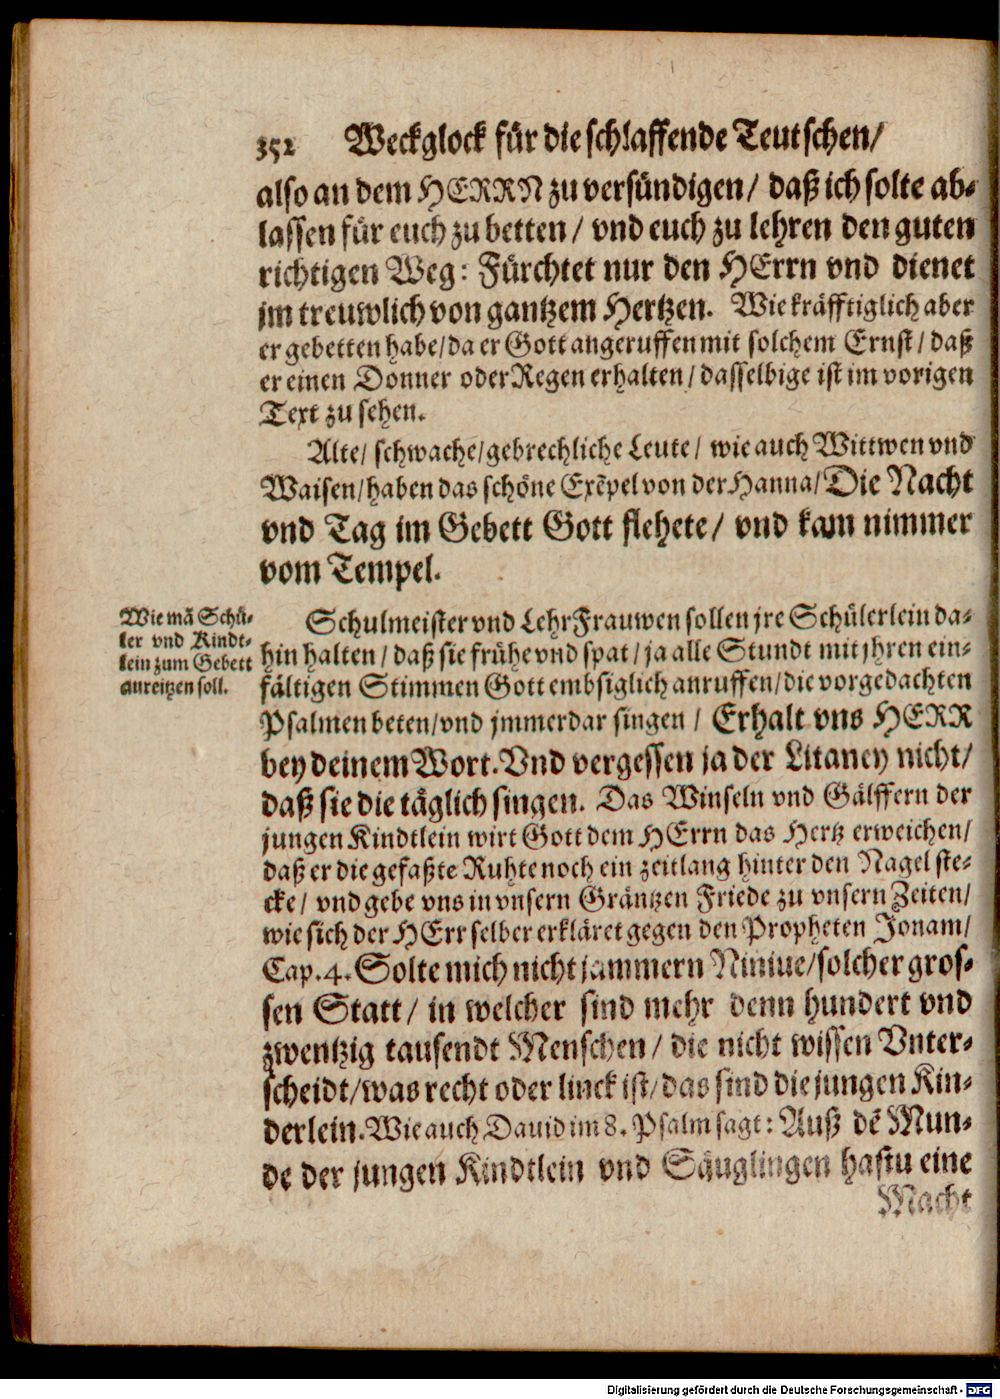 352 Weckglock für die schlaffende Teutschen/
also an dem HERRN zu versündigen/ daß ich solte ab-
lassen für euch zu betten/ vnd euch zu lehren den guten
richtigen Weg: Fürchtet nur den HErrn vnd dienet
jm treuwlich von gantzem Hertzen. Wie kräfftiglich aber
er gebetten habe/ da er Gott angeruffen mit solchem Ernst/ daß
er einen Donner oder Regen erhalten/ dasselbige ist im vorigen
Text zu sehen.
Alte/ schwache/ gebrechliche Leute/ wie auch Wittwen vnd
Waisen/ haben das schöne Exẽpel von der Hanna/ Die Nacht
vnd Tag im Gebett Gott flehete/ vnd kam nimmer
vom Tempel.
Wie mã Schü-
ler vnd Kindt-
lein zum Gebett
anreitzen soll.
Schulmeister vnd LehrFrauwen sollen jre Schülerlein da-
hin halten/ daß sie frühe vnd spat/ ja alle Stundt mit jhren ein-
fältigen Stimmen Gott embsiglich anruffen/ die vorgedachten
Psalmen beten/ vnd jmmerdar singen/ Erhalt vns HERR
bey deinem Wort. Vnd vergessen ja der Litaney nicht/
daß sie die täglich singen. Das Winseln vnd Gälffern der
jungen Kindtlein wirt Gott dem HErrn das Hertz erweichen/
daß er die gefaßte Ruhte noch ein zeitlang hinter den Nagel ste-
cke/ vnd gebe vns in vnsern Gräntzen Friede zu vnsern Zeiten/
wie sich der HErr selber erkläret gegen den Propheten Jonam/
Cap. 4. Solte mich nicht jammern Niniue/ solcher gros-
sen Statt/ in welcher sind mehr denn hundert vnd
zwentzig tausendt Menschen/ die nicht wissen Vnter-
scheidt/ was recht oder linck ist/ das sind die jungen Kin-
derlein. Wie auch Dauid im 8. Psalm sagt: Auß dẽ Mun-
de der jungen Kindtlein vnd Säuglingen hastu eine
Macht
Digitalisierung gefördert durch die Deutsche Forschungsgemeinschaft - DFG